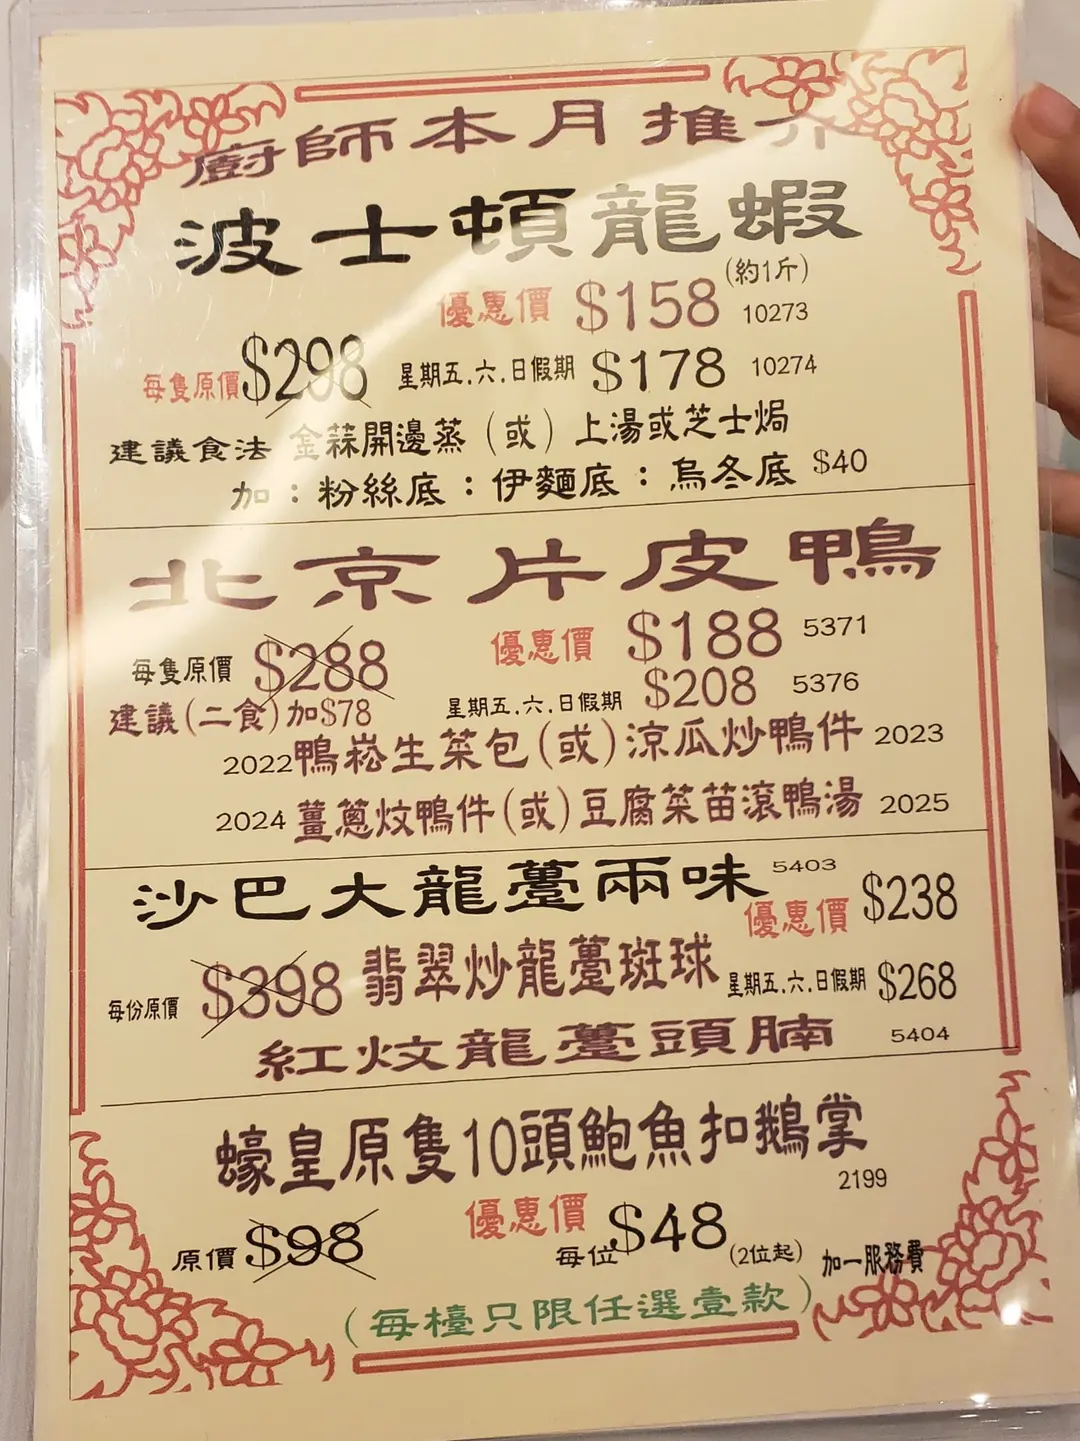 廚師本月推介
波士頓龍蝦
(約1斤)
優惠價 $158 10273
每隻原價$298 星期五.六.日假期 $178 10274
建議食法 金蒜開邊蒸（或）上湯或芝士焗
加：粉絲底：伊麵底：烏冬底 $40
北京片皮鴨
每隻原價 $288 優惠價 $188 5371
建議(二食)加$78 星期五.六.日假期 $208 5376
2022鴨崧生菜包(或)涼瓜炒鴨件 2023
2024 薑蔥炆鴨件(或)豆腐菜苗滾鴨湯 2025
沙巴大龍躉兩味 5403
優惠價 $238
每份原價 $398 翡翠炒龍躉斑球 星期五.六.日假期 $268
紅炆龍躉頭腩 5404
蠔皇原隻10頭鮑魚扣鵝掌
2199
原價 $98 優惠價 每位$48 (2位起) 加一服務費
(每檯只限任選壹款)